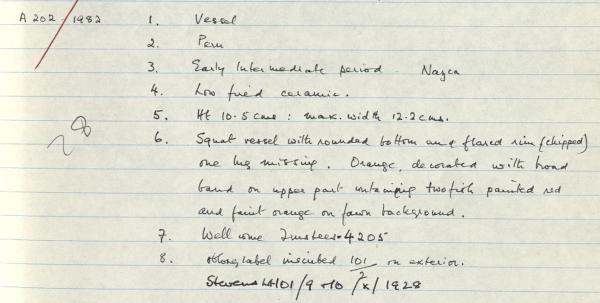 A 202. 1982 1. Vessel
2. Peru
3. Early Intermediate period - Nazca
4. Low fired ceramic.
5. Ht 10.5 cms : max. width 12.2 cms.
6. Squat vessel with rounded bottom and flared rim (chipped)
one lug missing. Orange, decorated with broad
band on upper part containing two fish painted red
and faint orange on fawn background.
28
7. Wellcome Trustees. 4205
8. label inscribed 101 on exterior.
Stevens Lot 101 / 9 + 10 / x / 1928